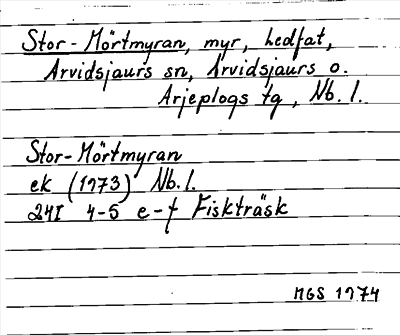 Stor-Mörtmyran, myr, hedfat,
Arvidsjaurs sn, Arvidsjaurs o.
Arjeplogs tg, Nb. l.
Stor-Mörtmyran
ek (1973) Nb. l.
24I 4-5 e-f Fiskträsk
MGS 1974